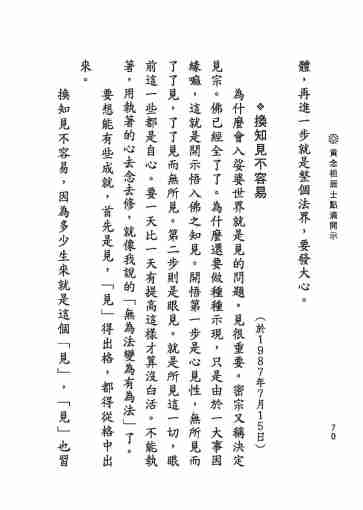 黃念祖居士點滴開示
70
體，再進一步就是整個法界，要發大心。
❖換知見不容易
（於1987年7月15日）
為什麼會入娑婆世界就是見的問題。見很重要。密宗又稱決定
見宗。佛已經全了了。為什麼還要做種種示現，只是由於一大事因
緣嘛，這就是開示悟入佛之知見。開悟第一步是心見性，無所見而
了了見，了了見而無所見。第二步則是眼見。就是所見這一切，眼
前這一些都是自心。要一天比一天有提高這樣才算沒白活。不能執
著，用執著的心去念去修，就像我說的「無為法變為有為法」了。
要想能有些成就，首先是見，「見」得出格，都得從格中出
來。
換知見不容易，因為多少生來就是這個「見」，「見」也習